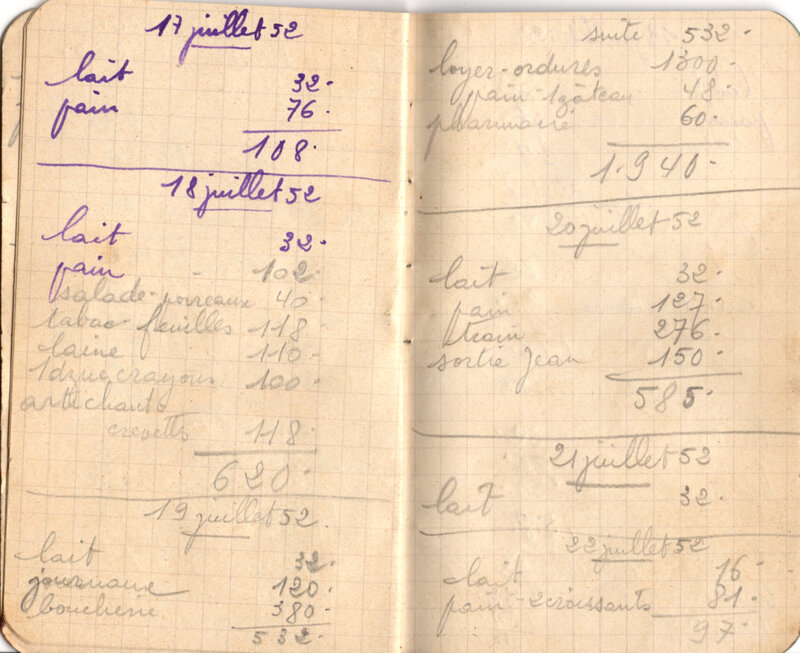 17 juillet 52
lait 32.
pain 76.
108.
18 juillet 52
lait 32.
pain 102.
salade-poireaux 40.
tabac-feuilles 118.
laine 110.
1 dzne crayons 100.
artichauts
crevettes 118.
620.
19 juillet 52.
lait 32.
journaux 120.
boucherie 380.
532.
suite 532.
loyer-ordures 1300.
pain-1 gâteau 48.
pharmacie 60.
1.940.
20 juillet 52
lait 32.
pain 127.
train 276.
sortie Jean 150.
585.
21 juillet 52
lait 32.
22 juillet 52
lait 16.
pain-2 croissants 81.
97.